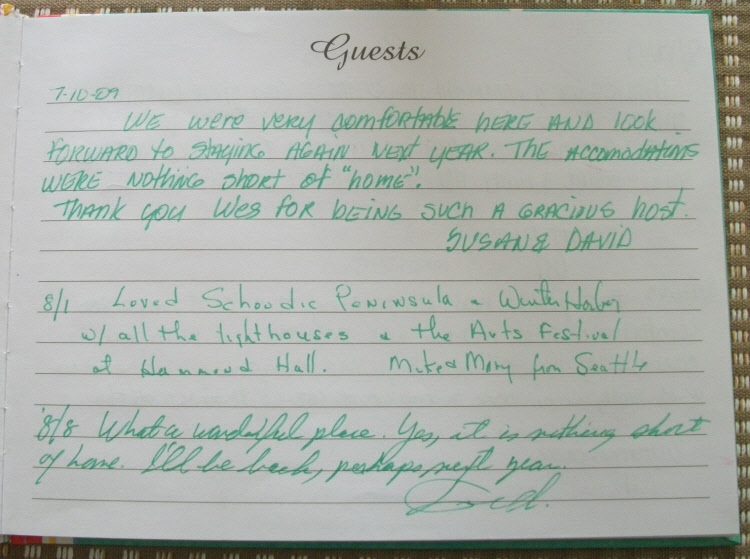 Guests
7-10-09
WE WERE VERY COMFORTABLE HERE AND LOOK
FORWARD TO STAYING AGAIN NEXT YEAR. THE ACCOMODATIONS
WERE NOTHING SHORT OF "HOME".
THANK YOU WES FOR BEING SUCH A GRACIOUS HOST.
SUSAN & DAVID
8/1 Loved Schoodic Peninsula & Winter Harbor
w/ all the lighthouses & the Arts Festival
at Hammond Hall. Mike & Mary from Seattle
8/8 What a wonderful place. Yes, it is nothing short
of home. I'll be back, perhaps next year.